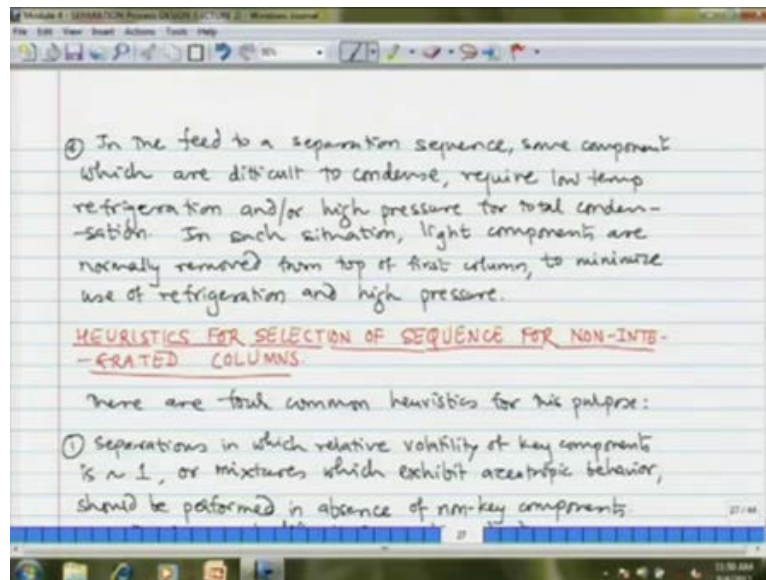 Module 4 - SEPARATION Process DESIGN (LECTURE 2) - Windows Journal
File Edit View Insert Actions Tools Help
④ In the feed to a separation sequence, some component
which are difficult to condense, require low temp
refrigeration and/or high pressure for total conden-
-sation. In such situation, light components are
normally removed from top of first column, to minimize
use of refrigeration and high pressure.
HEURISTICS FOR SELECTION OF SEQUENCE FOR NON-INTE-
-GRATED COLUMNS.
There are four common heuristics for this purpose:
① Separations in which relative volatility of key components
is ~ 1, or mixtures which exhibit azeotropic behavior,
should be performed in absence of non-key components.
27
11:50 AM